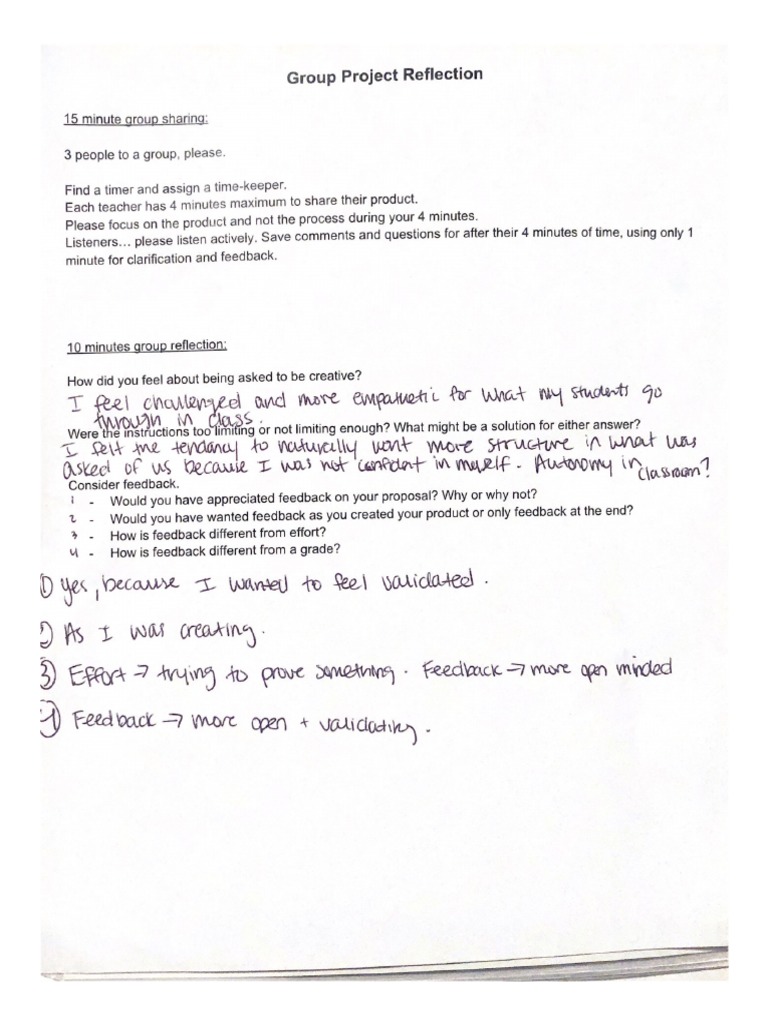 Group Project Reflection
15 minute group sharing:
3 people to a group, please.
Find a timer and assign a time-keeper.
Each teacher has 4 minutes maximum to share their product.
Please focus on the product and not the process during your 4 minutes.
Listeners... please listen actively. Save comments and questions for after their 4 minutes of time, using only 1
minute for clarification and feedback.
10 minutes group reflection:
How did you feel about being asked to be creative?
I feel challenged and more empathetic for what my students go
through in class.
Were the instructions too limiting or not limiting enough? What might be a solution for either answer?
I felt the tendancy to naturally want more structure in what was
asked of us because I was not confident in myself. Autonomy in
classroom?
Consider feedback.
1 - Would you have appreciated feedback on your proposal? Why or why not?
2 - Would you have wanted feedback as you created your product or only feedback at the end?
3 - How is feedback different from effort?
4 - How is feedback different from a grade?
1) Yes, because I wanted to feel validated.
2) As I was creating.
3) Effort → trying to prove something. Feedback → more open minded
4) Feedback → more open + validating.